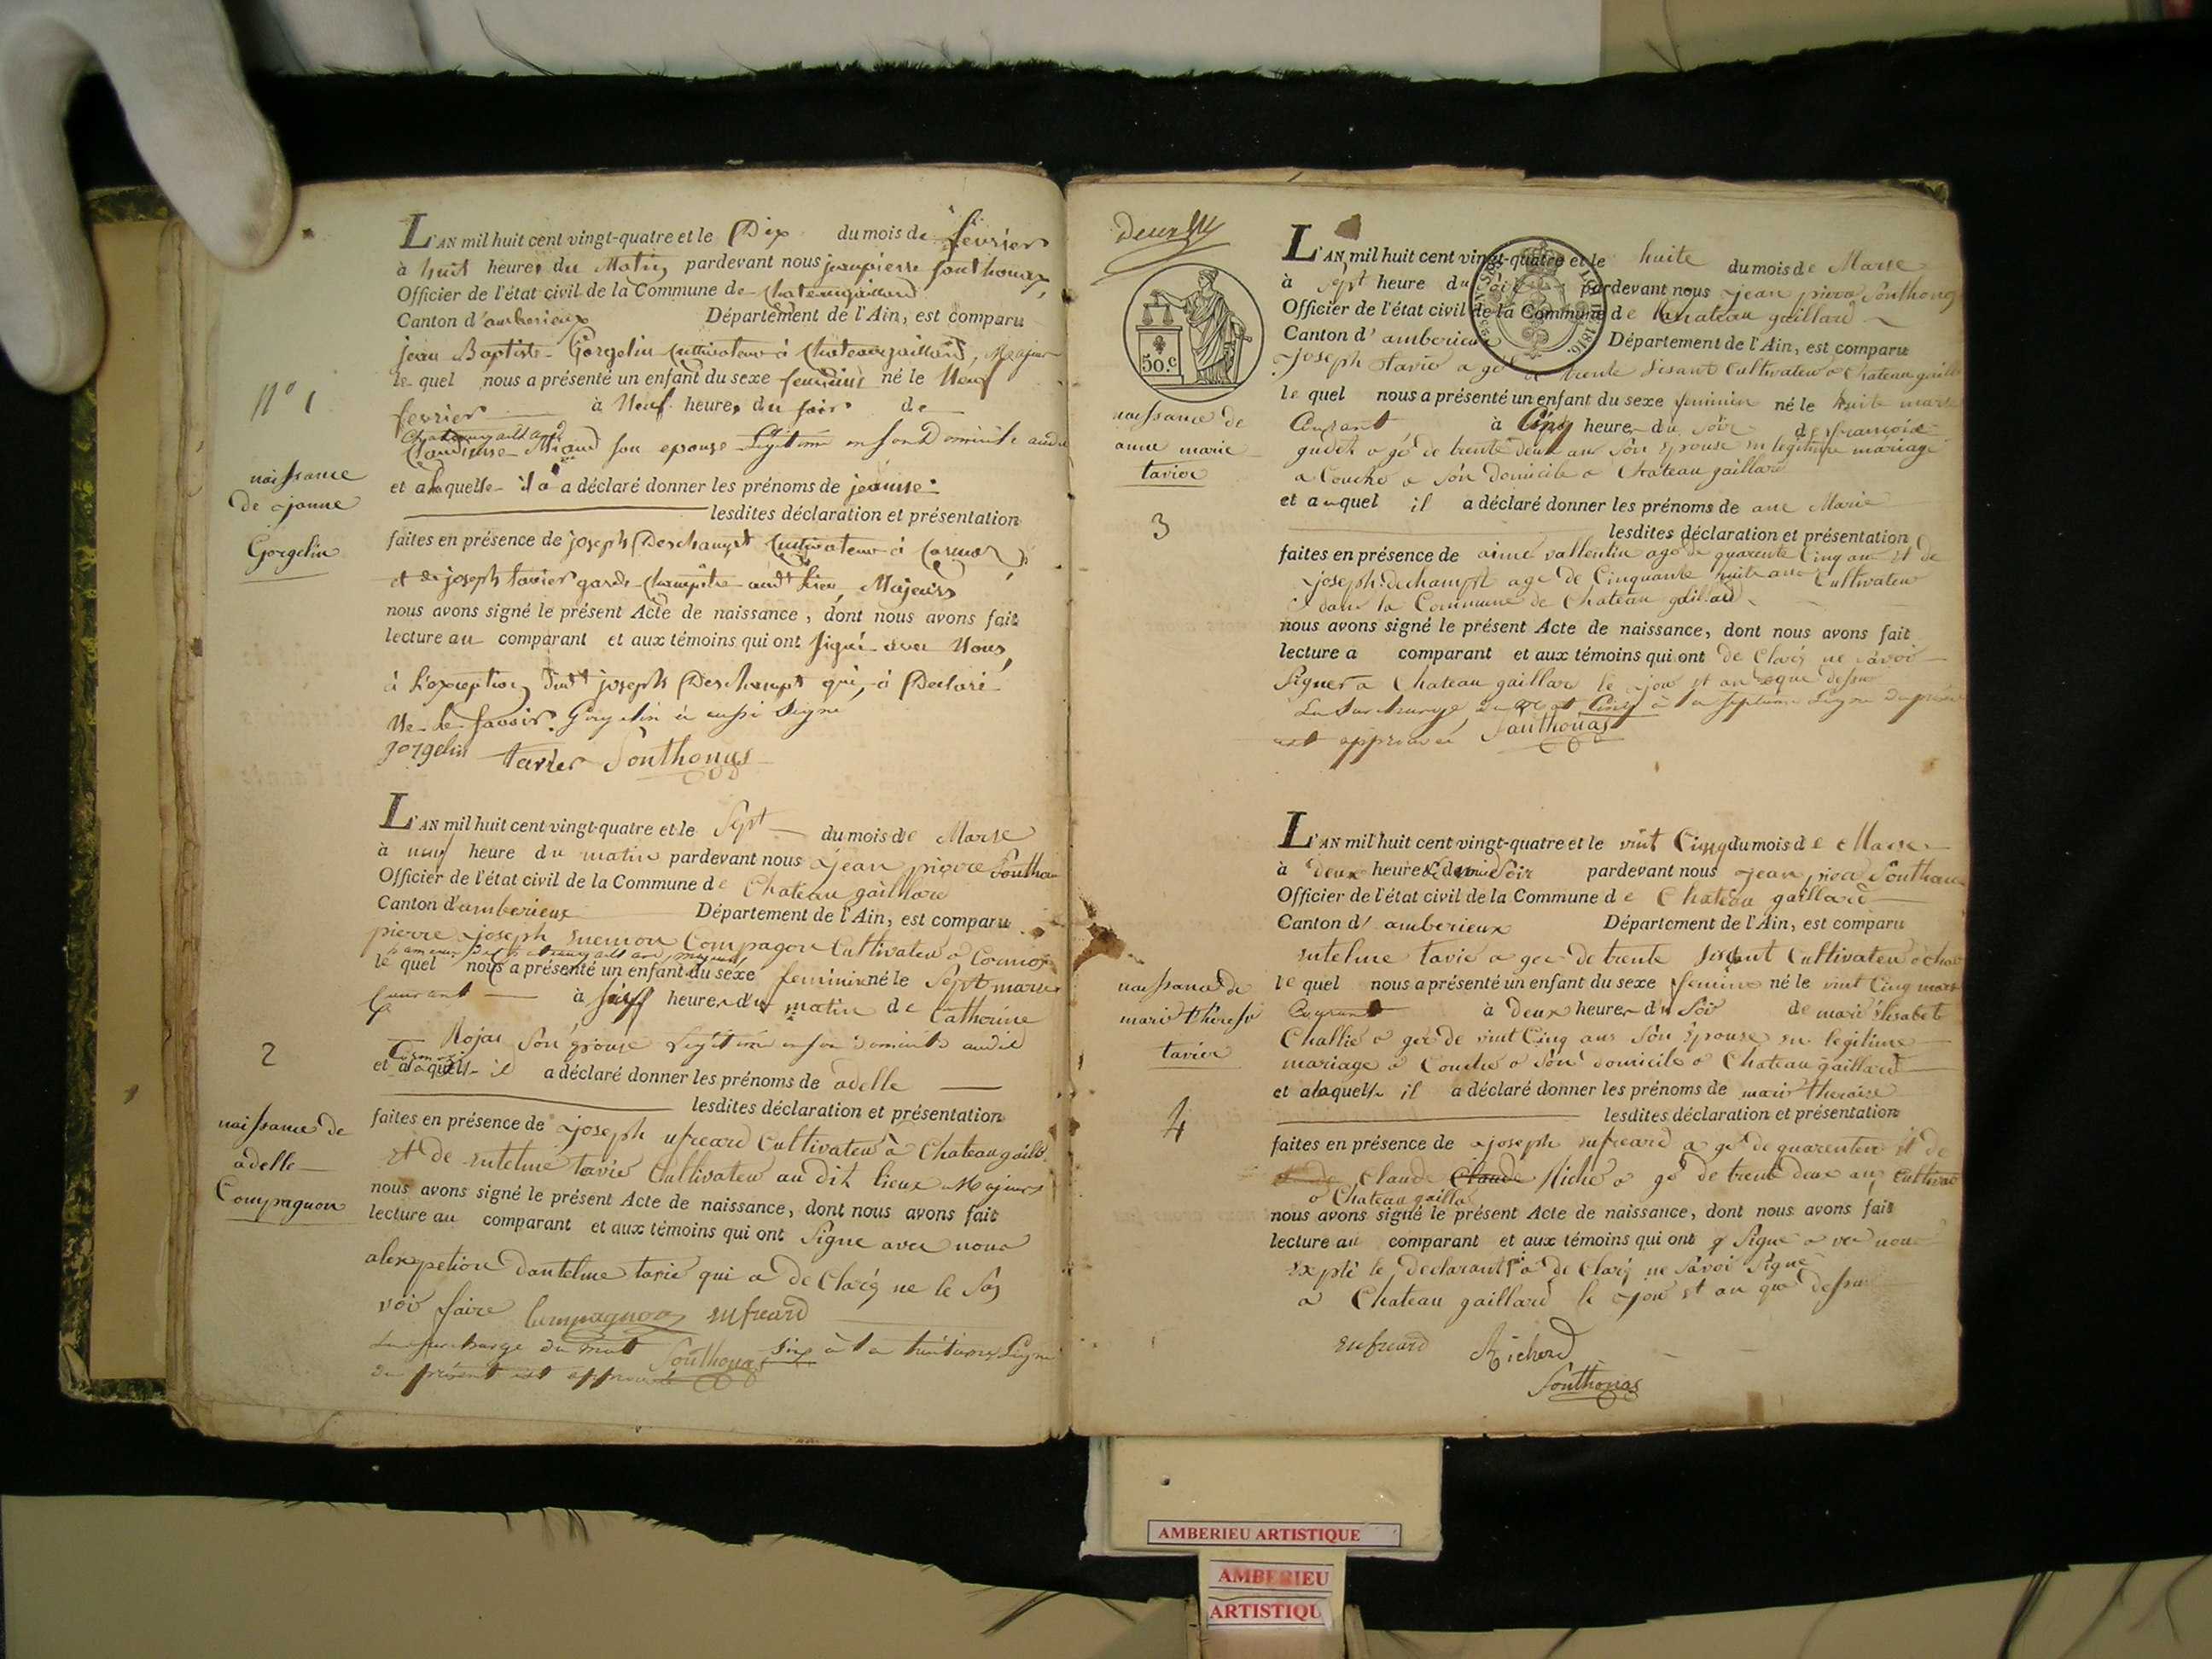 L'AN mil huit cent vingt-quatre et le Dix du mois de fevrier
à huit heures du Matin pardevant nous jeanpierre fonthonas,
Officier de l'état civil de la Commune de Chateaugaillard
Canton d'amberieux Département de l'Ain, est comparu
jean Baptiste Gorgelin Cultivateur à Chateaugaillard, Majeur
le quel nous a présenté un enfant du sexe feminin né le Neuf
fevrier à Neuf heures du soir de
son epouse Legitime en son Domicile audit
et a laquelle il a a déclaré donner les prénoms de jeanne
lesdites déclaration et présentation
faites en présence de joseph Deschampt Cultivateur à Cormoz
et de joseph tavier garde Champêtre audt lieu, Majeurs
nous avons signé le présent Acte de naissance, dont nous avons fait
lecture au comparant et aux témoins qui ont signé avec Nous,
à l'exception dudt joseph Deschampt qui, à Declaré
Ne le savoir. Gorgelin à aussi Signé
gorgelin tavier Fonthonas
N° 1
naissance
de jeanne
Gorgelin
L'AN mil huit cent vingt-quatre et le Sept du mois de Marse
à neuf heure du matin pardevant nous jean pierre Fonthonas
Officier de l'état civil de la Commune de Chateau gaillard
Canton d'amberieux Département de l'Ain, est comparu
pierre joseph Compagon Cultivateur a Cormoz
le quel nous a présenté un enfant du sexe feminin né le Sept marse
Courant à six heures du matin de Catherine
Rojas Son épouse Legitime en son domicile audit
Cormoz
et a laquelle il a déclaré donner les prénoms de adelle
lesdites déclaration et présentation
faites en présence de joseph ufreard Cultivateur à Chateaugaill.
et de entelme tavié Cultivateur au dit lieux Majeurs
nous avons signé le présent Acte de naissance, dont nous avons fait
lecture au comparant et aux témoins qui ont Signe avec nous
alexpetion dantelme tavié qui a de Claré ne le Sa
voir faire Compagnon eufreard
La surcharge du mot Six à la huitieme Ligne
du présent est approuvée Fonthonas
2
naissance de
adelle
Compagnon
50.c
L'AN mil huit cent vingt-quatre et le huite du mois de Marse
à Sept heure du soir pardevant nous jean pierre Fonthonas
Officier de l'état civil de la Commune de Chateau gaillard
Canton d'amberieux Département de l'Ain, est comparu
joseph tavié a gé de trente sisant Cultivateur a Chateau gaill
le quel nous a présenté un enfant du sexe feminin né le huite marse
Courant à Cinq heure du Soir de francoise
gudet a gé de trente deux ans Son épouse en légitime mariage
a Couché a Son domicile a Chateau gaillard
et a uquel il a déclaré donner les prénoms de ane Marie
lesdites déclaration et présentation
faites en présence de aimé vallentin agé de quarente Cinq ans et de
joseph dechampt age de Cinquante huite ans Cultivateur
dans la Commune de Chateau gaillard
nous avons signé le présent Acte de naissance, dont nous avons fait
lecture a comparant et aux témoins qui ont de Claré ne Savoir
Signer a Chateau gaillard le jour et an que dessu
La Surcharge du mot Cinq à la Septieme Ligne du présent
est approuvée Fonthonas
naissance de
anne marie
tavier
3
L'AN mil huit cent vingt-quatre et le vint Cinq du mois de Marse
à deux heure & demie Soir pardevant nous jean piere Fonthonas
Officier de l'état civil de la Commune de Chateau gaillard
Canton d'amberieux Département de l'Ain, est comparu
entelme tavié a gee de trente sisant Cultivateur a Chat
le quel nous a présenté un enfant du sexe feminin né le vint Cinq mars
Courant à deux heure du Soir de marie élisabete
Challié a gée de vint Cinq ans Son épouse en legitime
mariage a Couché a Son domicile a Chateau gaillard
et a laquelle il a déclaré donner les prénoms de marie theraise
lesdites déclaration et présentation
faites en présence de joseph eufreard a gé de quarente et de
Claude Claude Riché a gé de trente deux ans Cultivat
a Chateau gailla
nous avons signé le présent Acte de naissance, dont nous avons fait
lecture au comparant et aux témoins qui ont Signé a vec nous
expté le declarant a de Claré ne Savoir Signé
a Chateau gaillard le jour et an que dessus
eufreard Richerd
Fonthonas
naissance de
marie thérese
tavier
4
AMBERIEU ARTISTIQUE
AMBERIEU
ARTISTIQU